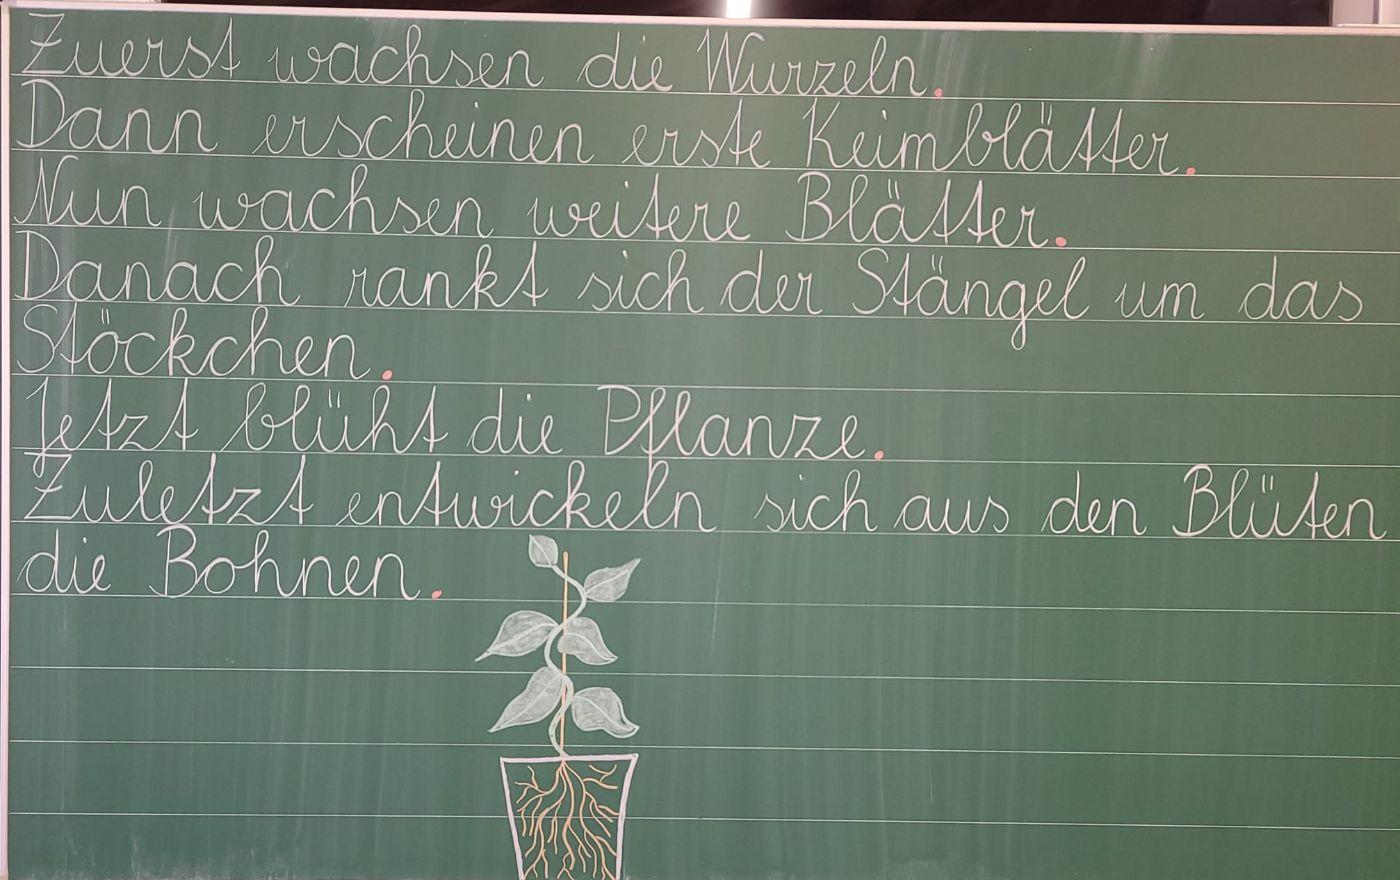 Zuerst wachsen die Wurzeln.
Dann erscheinen erste Keimblätter.
Nun wachsen weitere Blätter.
Danach rankt sich der Stängel um das
Stöckchen.
Jetzt blüht die Pflanze.
Zuletzt entwickeln sich aus den Blüten
die Bohnen.